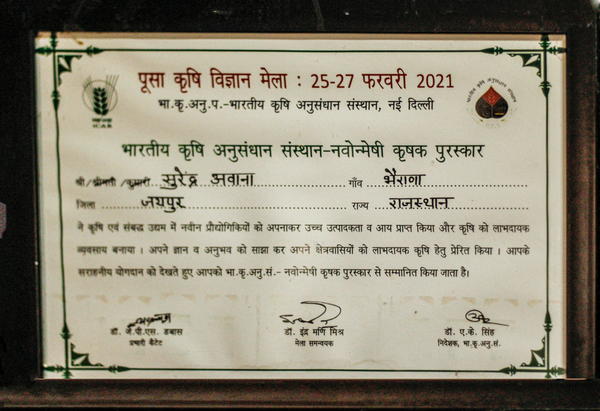 पूसा कृषि विज्ञान मेला : 25-27 फरवरी 2021
भा.कृ.अनु.प.-भारतीय कृषि अनुसंधान संस्थान, नई दिल्ली
ICAR
भारतीय कृषि अनुसंधान संस्थान-नवोन्मेषी कृषक पुरस्कार
श्री/श्रीमती/कुमारी सुरेंद्र अवाना गाँव भैराणा
जिला जयपुर राज्य राजस्थान
ने कृषि एवं संबद्ध उद्यम में नवीन प्रौद्योगिकियों को अपनाकर उच्च उत्पादकता व आय प्राप्त किया और कृषि को लाभदायक
व्यवसाय बनाया । अपने ज्ञान व अनुभव को साझा कर अपने क्षेत्रवासियों को लाभदायक कृषि हेतु प्रेरित किया । आपके
सराहनीय योगदान को देखते हुए आपको भा.कृ.अनु.सं.- नवोन्मेषी कृषक पुरस्कार से सम्मानित किया जाता है।
डॉ. जे.पी.एस. डबास डॉ. इंद्र मणि मिश्र डॉ. ए.के. सिंह
प्रभारी कैटेट मेला समन्वयक निदेशक, भा.कृ.अनु.सं.